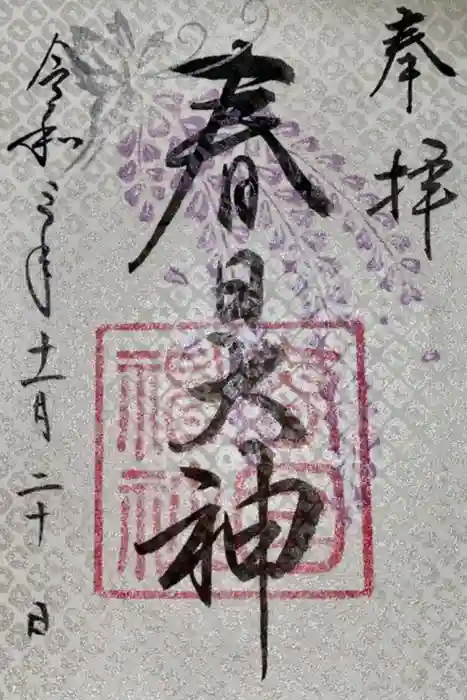 奉拝
春日大神
令和三年十一月二十日